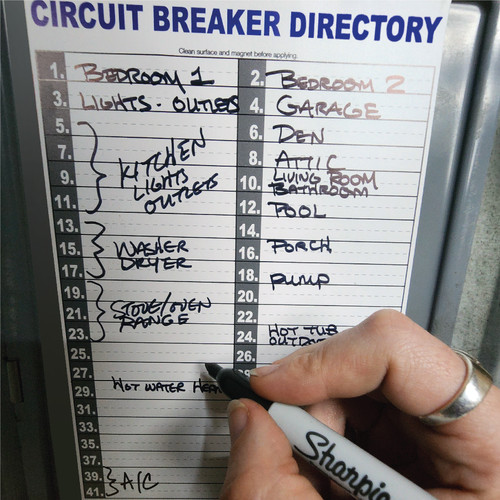 CIRCUIT BREAKER DIRECTORY
Clean surface and magnet before applying.
1. BEDROOM 1 2. BEDROOM 2
3. LIGHTS - OUTLETS 4. GARAGE
5. 6. DEN
7. KITCHEN 8. ATTIC
9. LIGHTS 10. LIVING ROOM
BATHROOM
11. OUTLETS 12. POOL
13. 14.
15. WASHER 16. PORCH
17. DRYER 18. PUMP
19. 20.
21. STOVE/OVEN 22.
23. RANGE 24. HOT TUB
25. 26.
27.
29. HOT WATER
31.
33.
35.
37.
39. A/C
41.
Sharpie